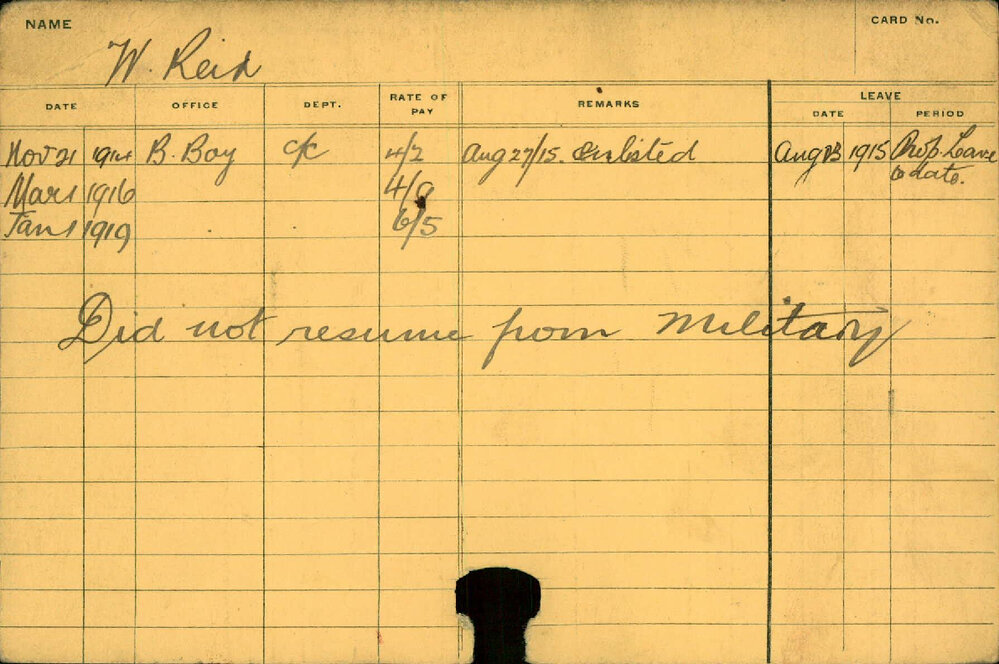 NAME
CARD No.
W. Reid
DATE OFFICE DEPT. RATE OF PAY REMARKS LEAVE
DATE PERIOD
Nov 21 1914 B. Boy c/c 4/2 Aug 27/15. Enlisted Aug 1915 Prop. Leave
to date.
Mar 1 1916 4/9
Jan 1 1919 6/5
Did not resume from military